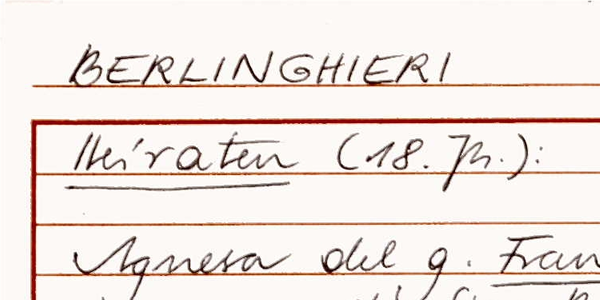 BERLINGHIERI
Heiraten (18. Jh.):
Agnesa del q. Fran